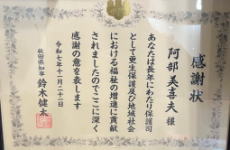 感謝状
阿部美喜夫 様
あなたは長年にわたり保護司
として更生保護及び地域社会
における福祉の増進に貢献
されましたのでここに深く
感謝の意を表します
令和七年十一月二十一日
秋田県知事 鈴木健太